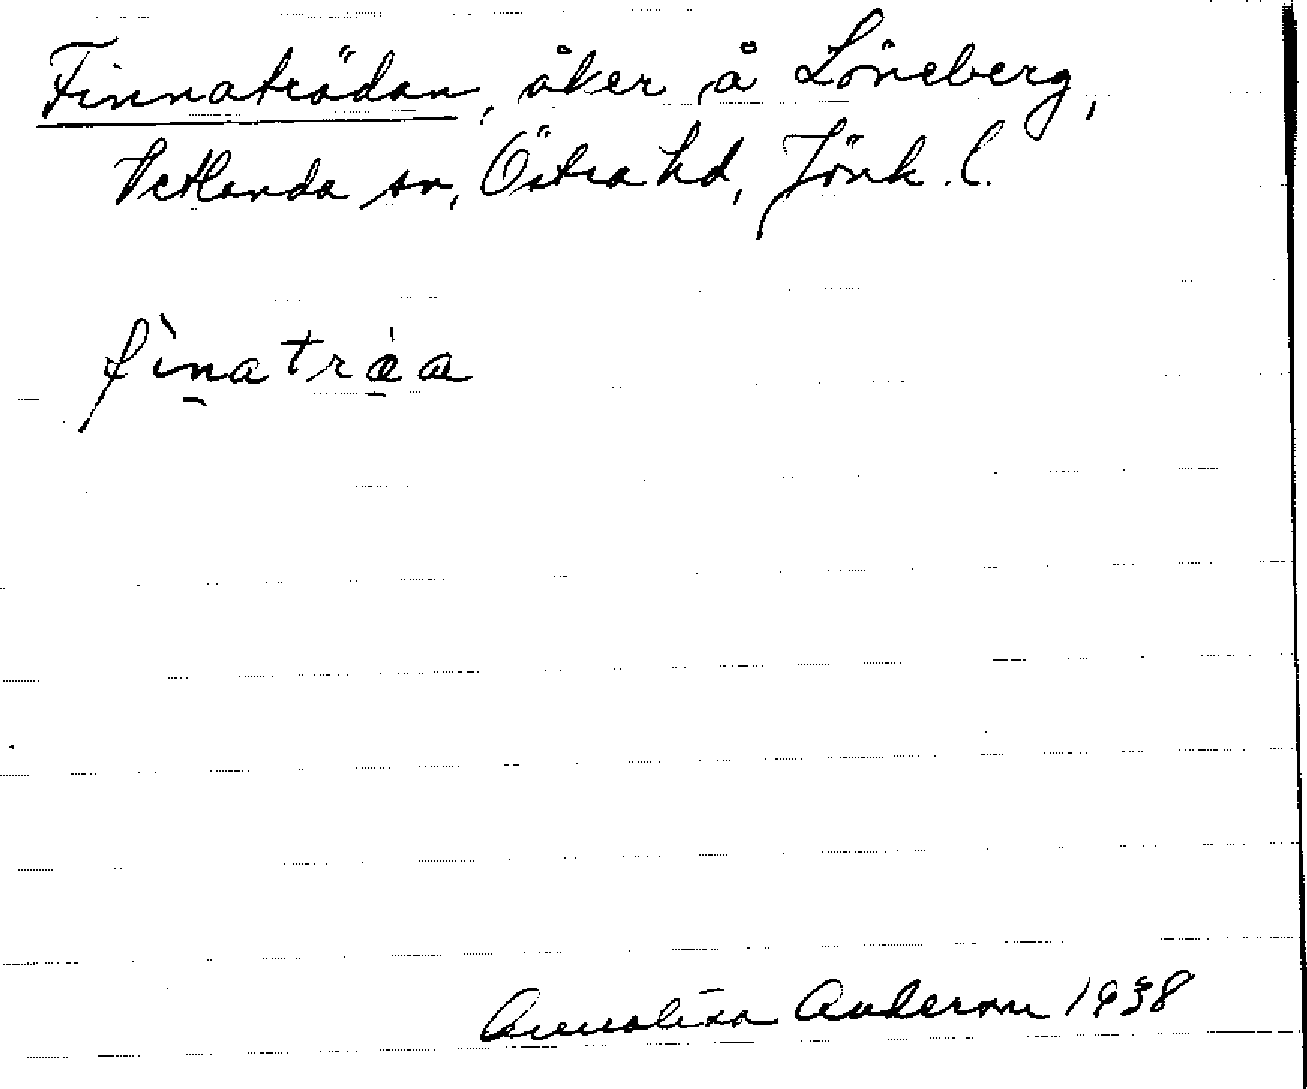 Finnaträdan, åker å Löneberg,
Vetlanda sn, Östra hd, Jönk. l.
fìnatrȧa
Annalisa Anderson 1938